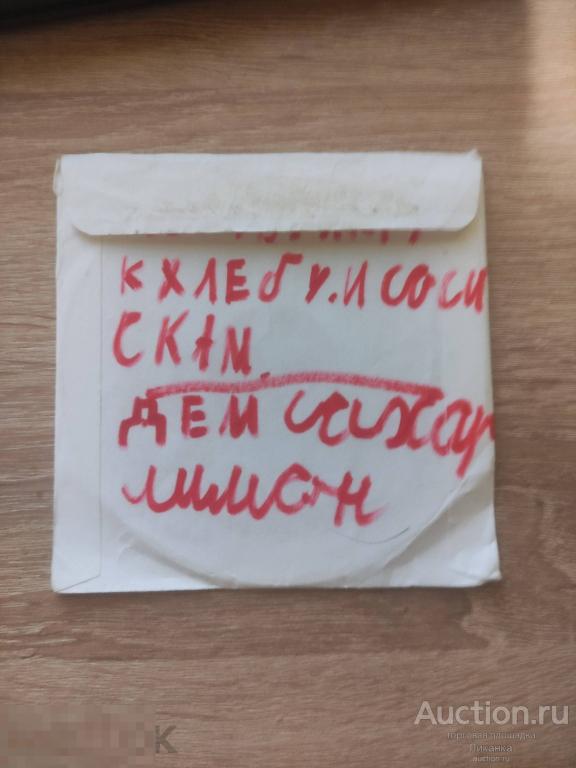 к хлебу. и соси
скам.
дем сахар
лимон
Auction.ru
торговая площадка
Пиканка
auction.ru